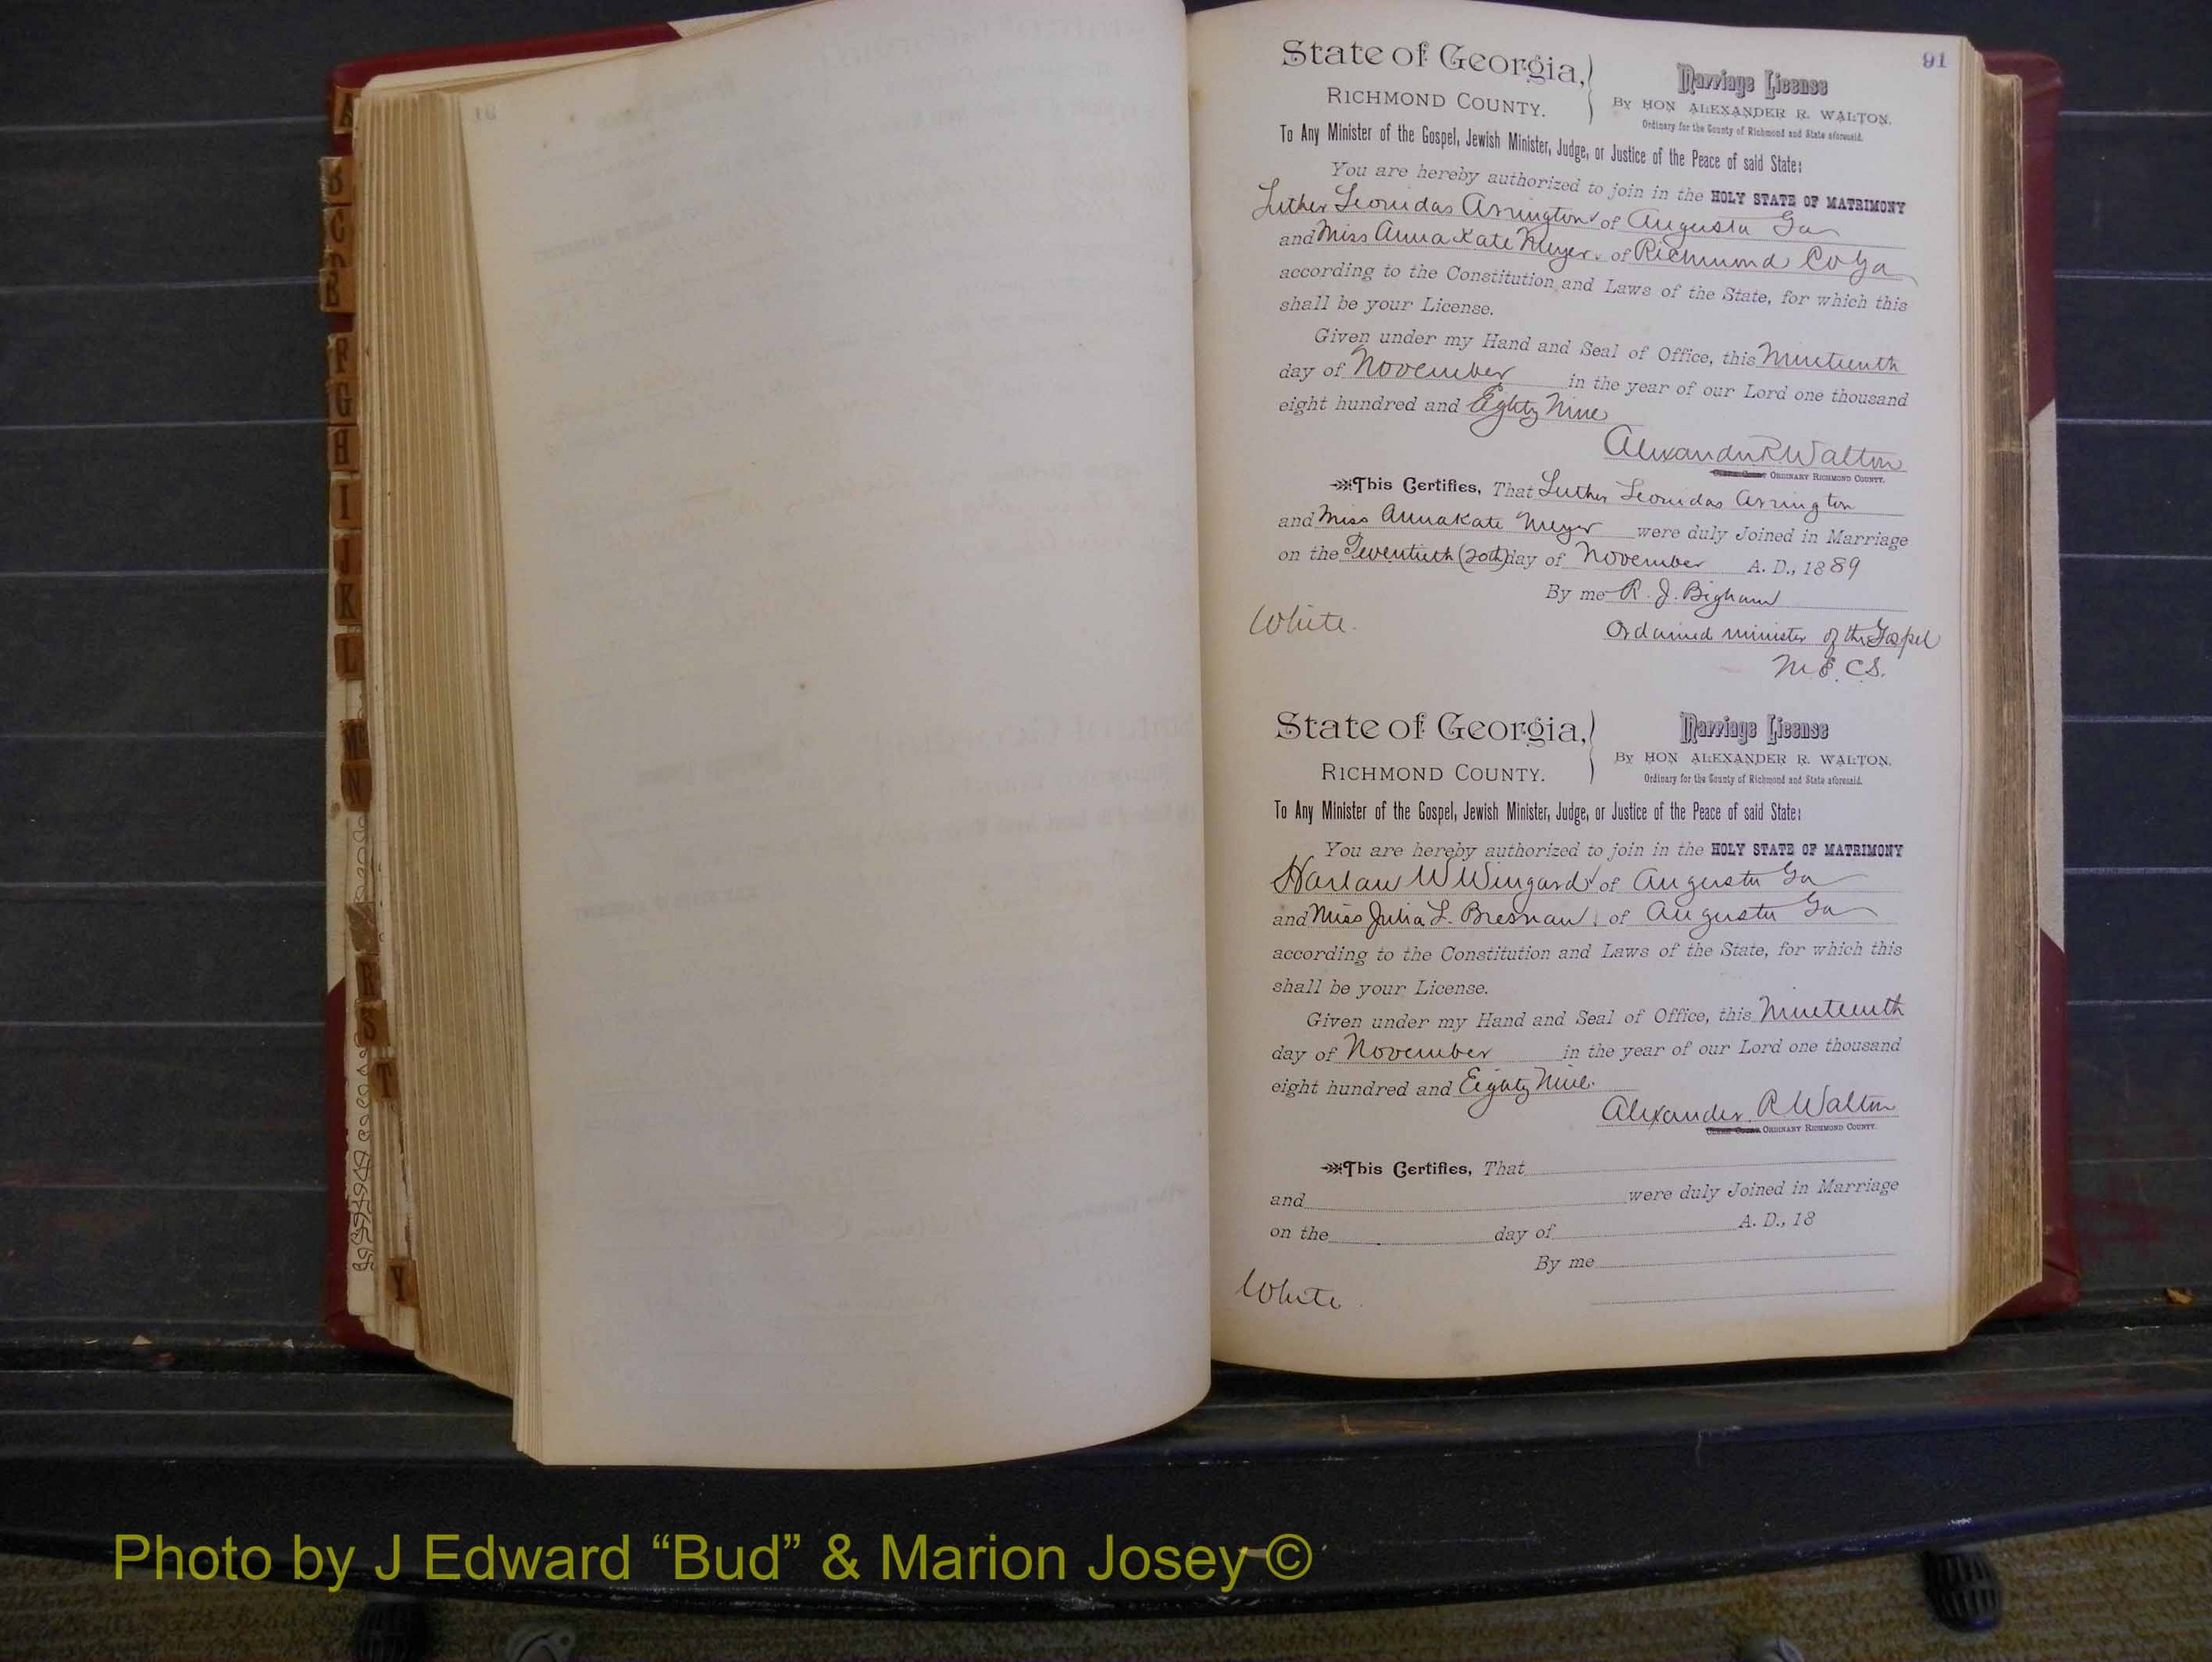 A
B
C
F
G
H
I
J
K
L
Mc
N
R
S
T
Y
91
State of Georgia,
RICHMOND COUNTY.
Marriage License
By HON ALEXANDER R. WALTON.
Ordinary for the County of Richmond and State aforesaid.
To Any Minister of the Gospel, Jewish Minister, Judge, or Justice of the Peace of said State:
You are hereby authorized to join in the HOLY STATE OF MATRIMONY
Luther Leonidas Arrington of Augusta Ga
and Miss Anna Kate Meyer. of Richmond Co Ga
according to the Constitution and Laws of the State, for which this
shall be your License.
Given under my Hand and Seal of Office, this Nineteenth
day of November in the year of our Lord one thousand
eight hundred and Eighty Nine
Alexander R Walton
ORDINARY RICHMOND COUNTY.
This Certifies, That Luther Leonidas Arrington
and Miss Anna Kate Meyer were duly Joined in Marriage
on the Twentieth (20th) day of November A. D., 1889
By me R. J. Bigham
White.
Ordained minister of the Gospel
M. E. C. S.
State of Georgia,
RICHMOND COUNTY.
Marriage License
By HON ALEXANDER R. WALTON.
Ordinary for the County of Richmond and State aforesaid.
To Any Minister of the Gospel, Jewish Minister, Judge, or Justice of the Peace of said State:
You are hereby authorized to join in the HOLY STATE OF MATRIMONY
Harlan W Wingard of Augusta Ga
and Miss Julia L. Bresnan of Augusta Ga
according to the Constitution and Laws of the State, for which this
shall be your License.
Given under my Hand and Seal of Office, this Nineteenth
day of November in the year of our Lord one thousand
eight hundred and Eighty Nine.
Alexander R Walton
ORDINARY RICHMOND COUNTY.
This Certifies, That
and were duly Joined in Marriage
on the day of A. D., 18
By me
White
Photo by J Edward “Bud” & Marion Josey ©